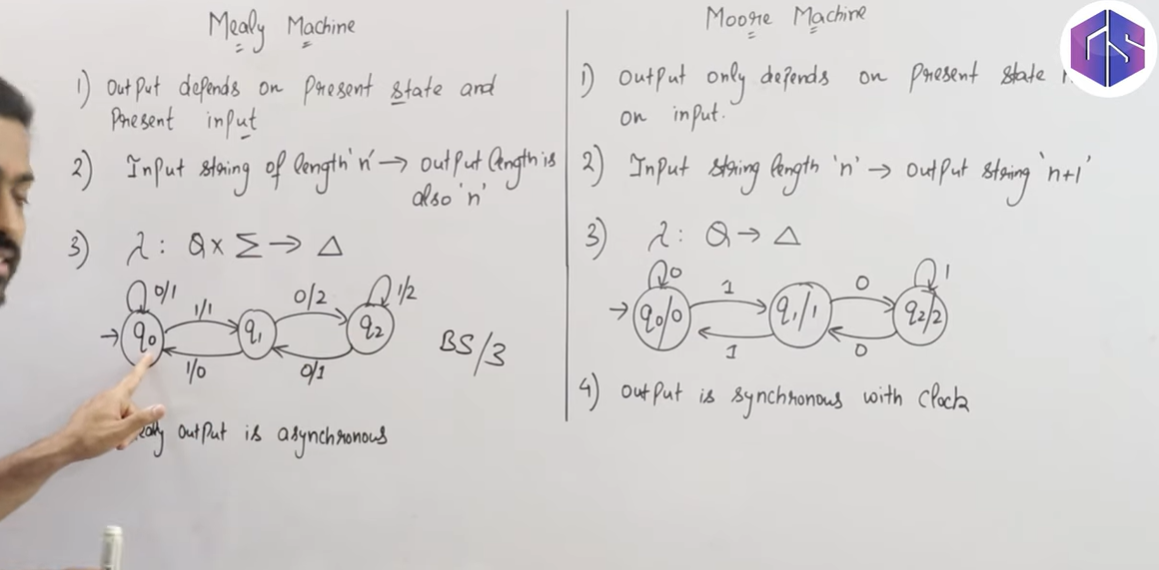 Mealy Machine
1) Output depends on Present state and
Present input
2) Input string of length 'n' → output length is
also 'n'
3) λ : Q × Σ → Δ
0/1
1/1
0/2
1/2
→ q0
q1
q2
1/0
0/1
BS/3
output is asynchronous
Moore Machine
1) Output only depends on Present state
on input.
2) Input string length 'n' → output string 'n+1'
3) λ : Q → Δ
0
1
0
1
→ q0/0
q1/1
q2/2
1
0
4) Output is synchronous with Clock
GS